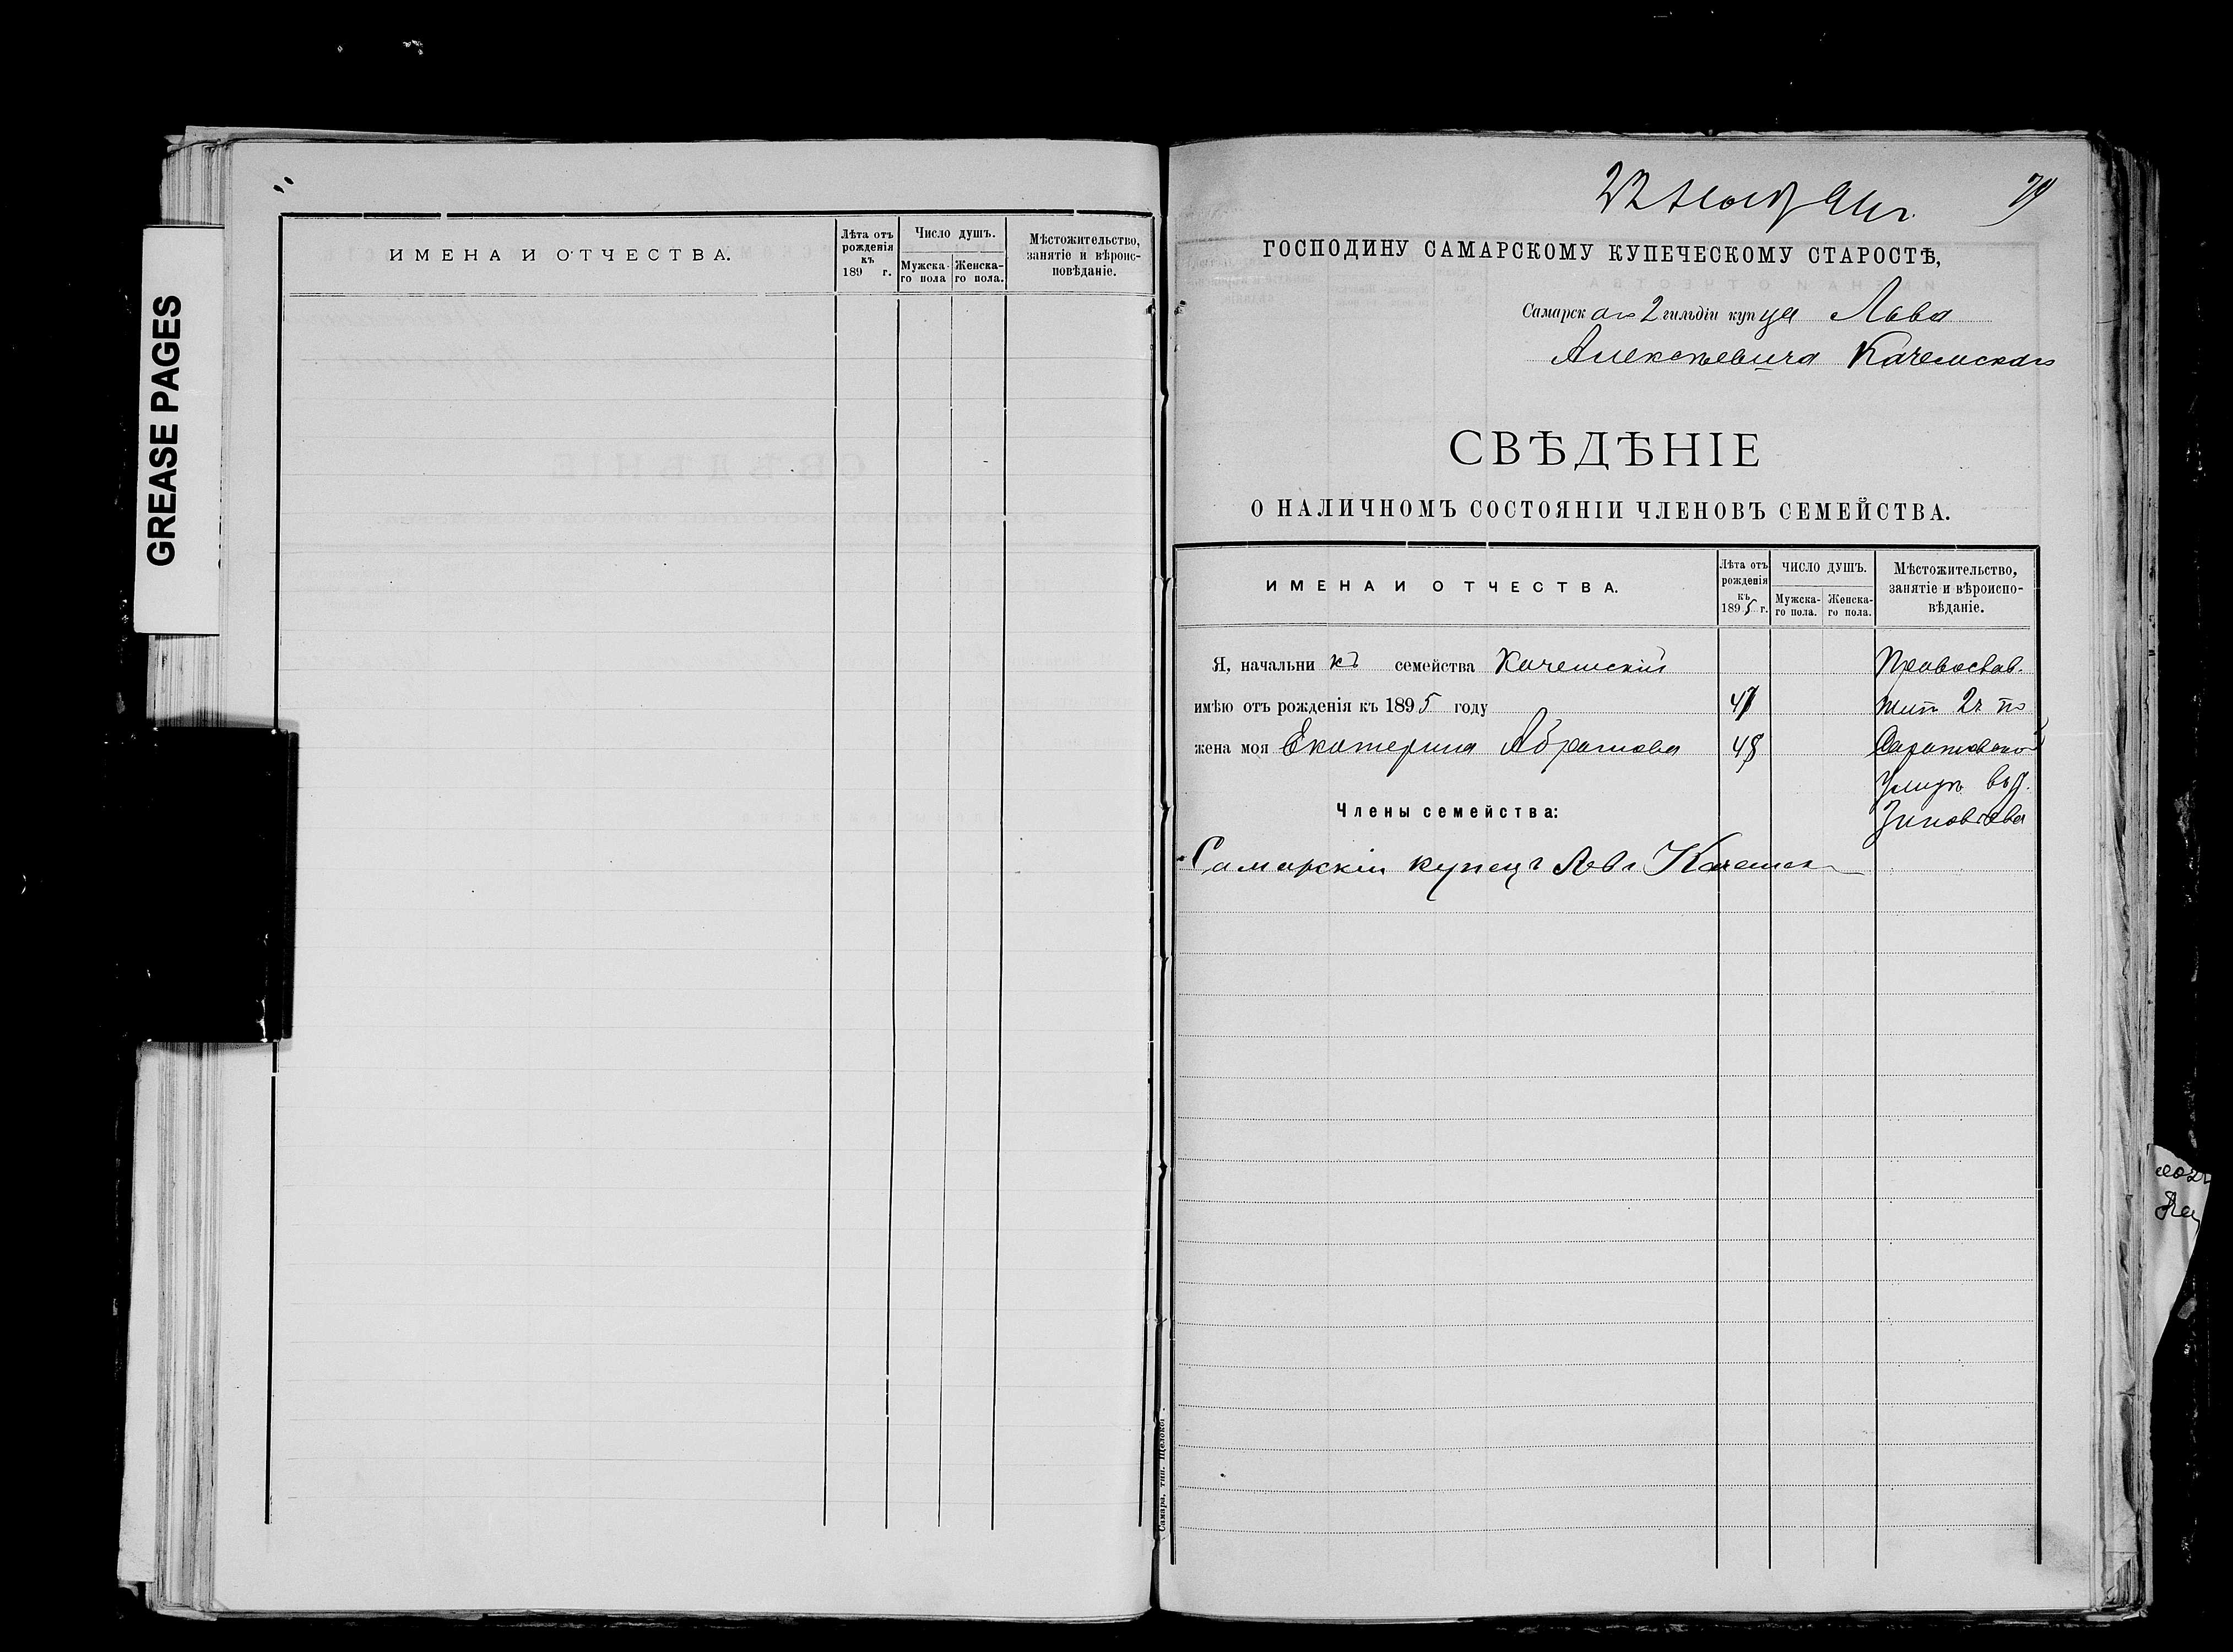 GREASE PAGES
ИМЕНА И ОТЧЕСТВА.
Лѣта отъ рожденія къ 189 г.
Число душъ.
Мужска-го пола
Женска-го пола.
Мѣстожительство, занятіе и вѣроис-повѣданіе.
22 Нояб 94 г.
79
ГОСПОДИНУ САМАРСКОМУ КУПЕЧЕСКОМУ СТАРОСТѢ,
Самарскаго 2 гильдіи купца Льва
Алексѣевича Качемскаго
СВѢДѢНІЕ
О НАЛИЧНОМЪ СОСТОЯНІИ ЧЛЕНОВЪ СЕМЕЙСТВА.
ИМЕНА И ОТЧЕСТВА.
Лѣта отъ рожденія къ 1895 г.
ЧИСЛО ДУШЪ.
Мужска-го пола.
Женска-го пола.
Мѣстожительство, занятіе и вѣроиспо-вѣданіе.
Я, начальникъ семейства Качемскій Православ.
имѣю отъ рожденія къ 1895 году 47 жит 2 ч по
жена моя Екатерина Абрамова 48 Саратовской
улицѣ въ д.
Члены семейства: Зиновьева
Самарскій купецъ Левъ Качемск
Самара, тип. Щелокова.